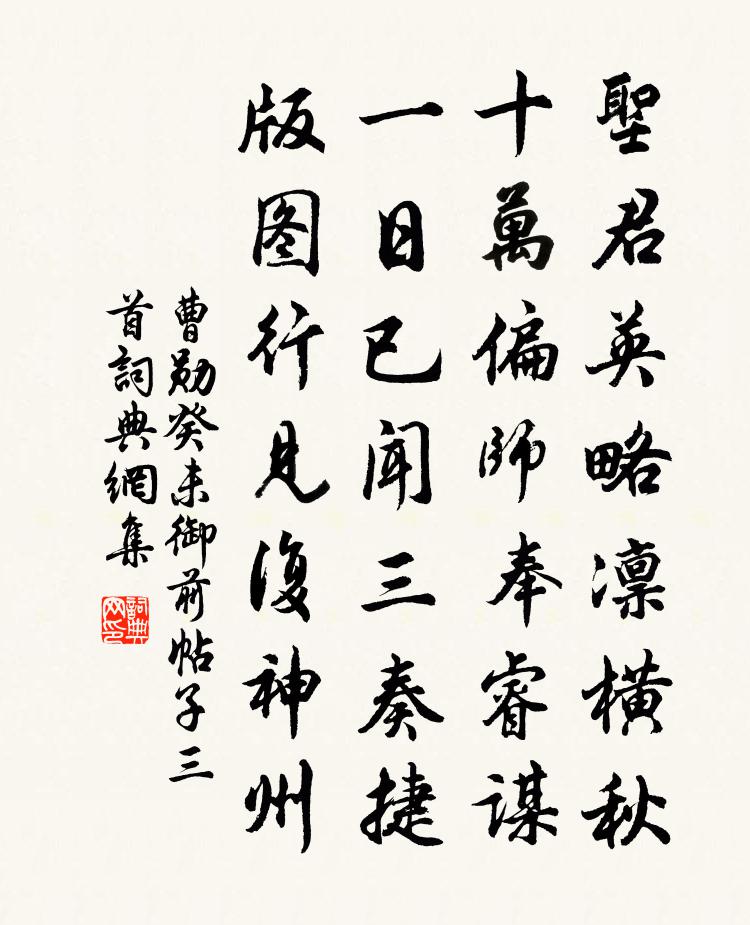 聖君英略凛橫秋
十萬偏師奉睿謀
一日已闻三奏捷
版图行見復神州
曹勛癸未御前帖子三
首詞典網集
詞典
网印